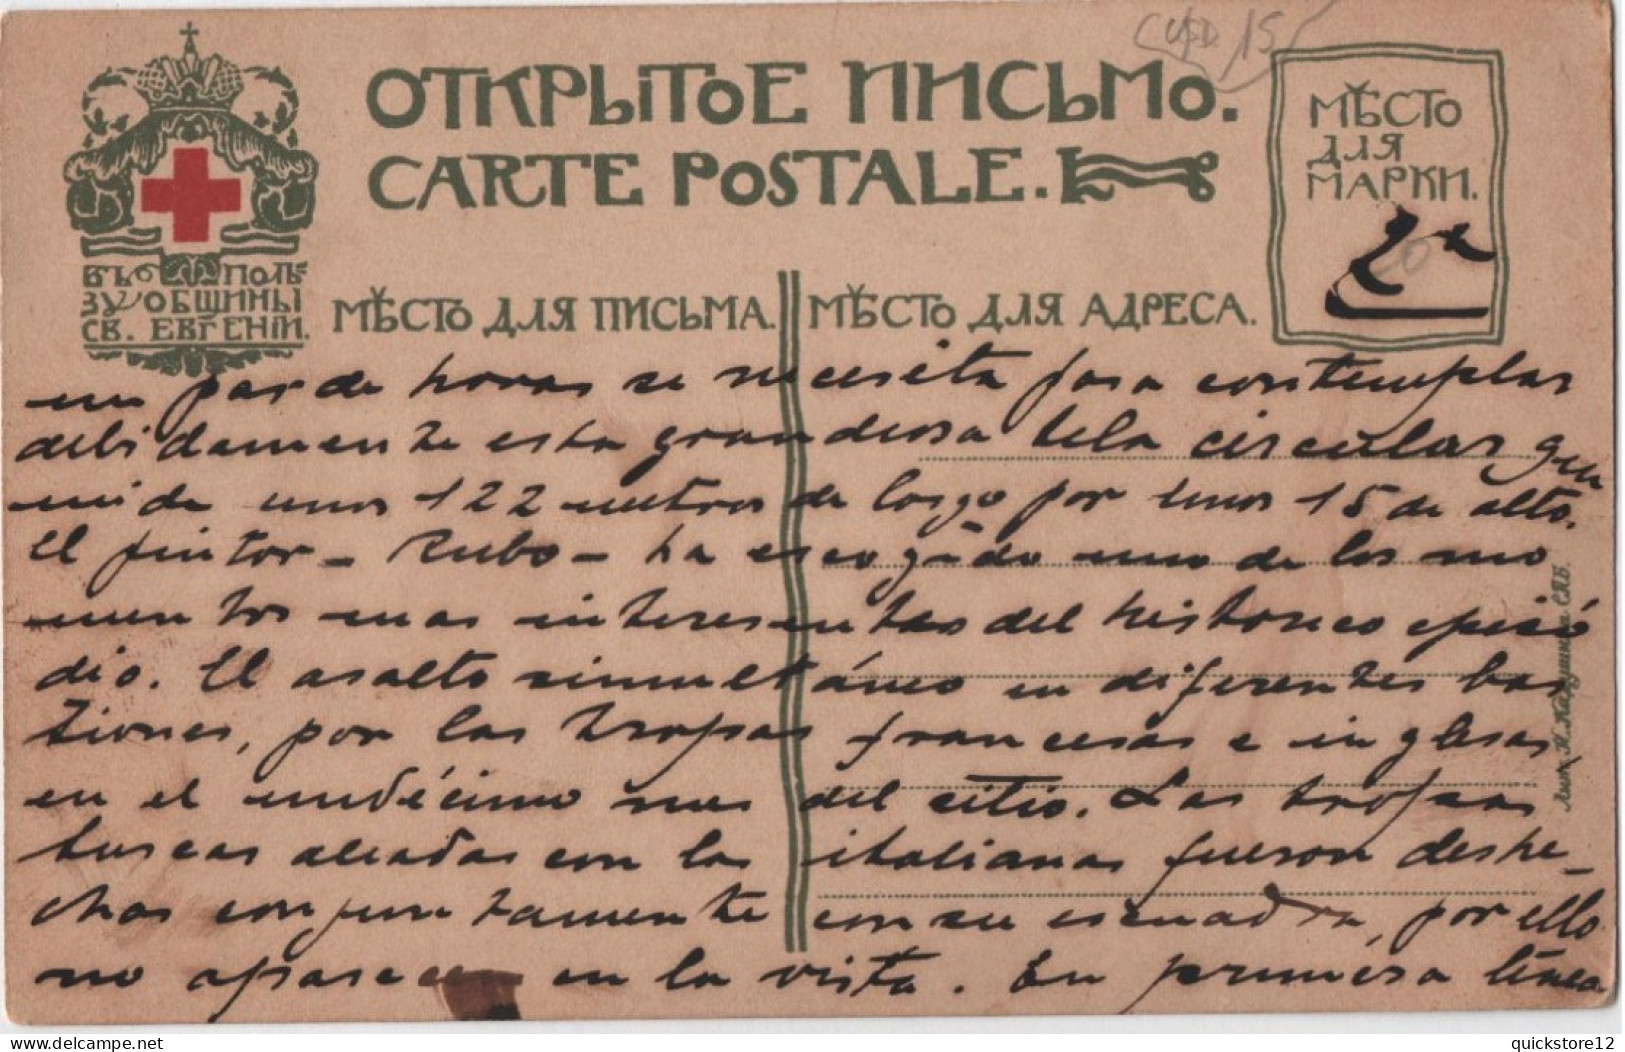 USD 15
ОТКРЫТОЕ ПИСЬМО.
CARTE POSTALE.
МѢСТО
ДЛЯ
МАРКИ.
2a
ВЪ ПОЛЬ=
ЗУ ОБЩИНЫ
СВ. ЕВГЕНІИ.
МѢСТО ДЛЯ ПИСЬМА. МѢСТО ДЛЯ АДРЕСА.
un par de horas se necesita para contemplar
debidamente esta grandiosa tela circular que
mide unos 122 metros de largo por unos 15 de alto.
El pintor - Rubo - ha escogido uno de los mo
mentos mas interesantes del historico episó
dio. El asalto simultáneo en diferentes bas
tiones, por las tropas francesas e inglesas
en el undécimo mes del sitio. Las tropas
turcas aliadas con las italianas fueron deshe-
chas conjuntamente con su escuadra, por ello
no aparecen en la vista. En primera línea
Лит. Н. Кадушина СПБ.
quickstore12